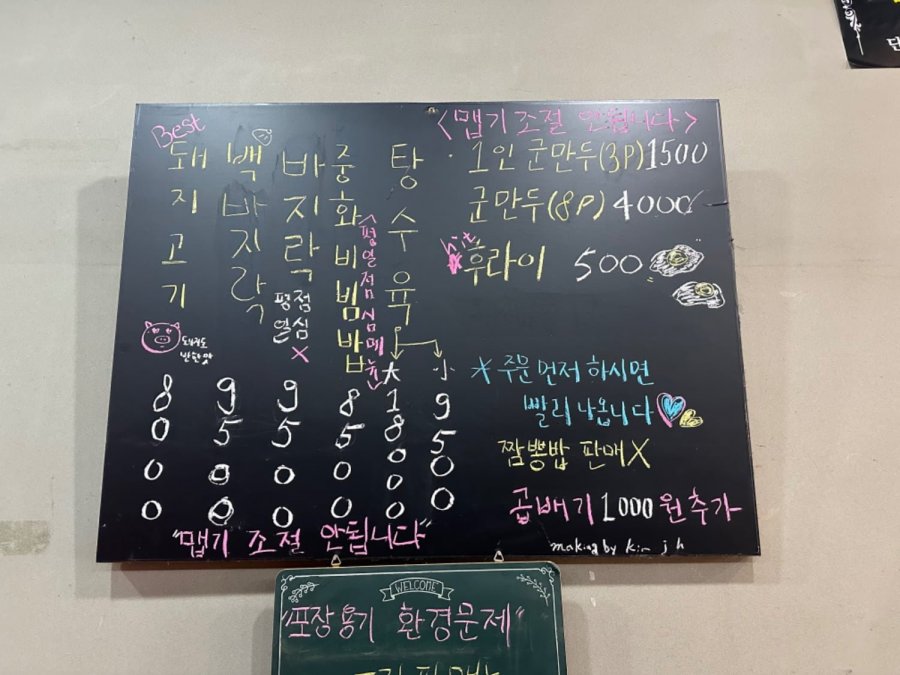 Best
돼지고기
돼지고도
반한맛
8000
백바지락
9500
바지락
평일
점심
X
9500
중화비빔밥
<평일점심메뉴>
8500
탕수육
大
小
18000
9500
"맵기 조절 안됩니다"
<맵기 조절 안됩니다>
1인 군만두(3P) 1500
군만두(8P) 4000
hit
후라이 500
* 주문먼저 하시면
빨리 나옵니다
짬뽕밥 판매X
곱배기 1000원추가
making by kim j h
WELCOME
"포장용기 환경문제"
단